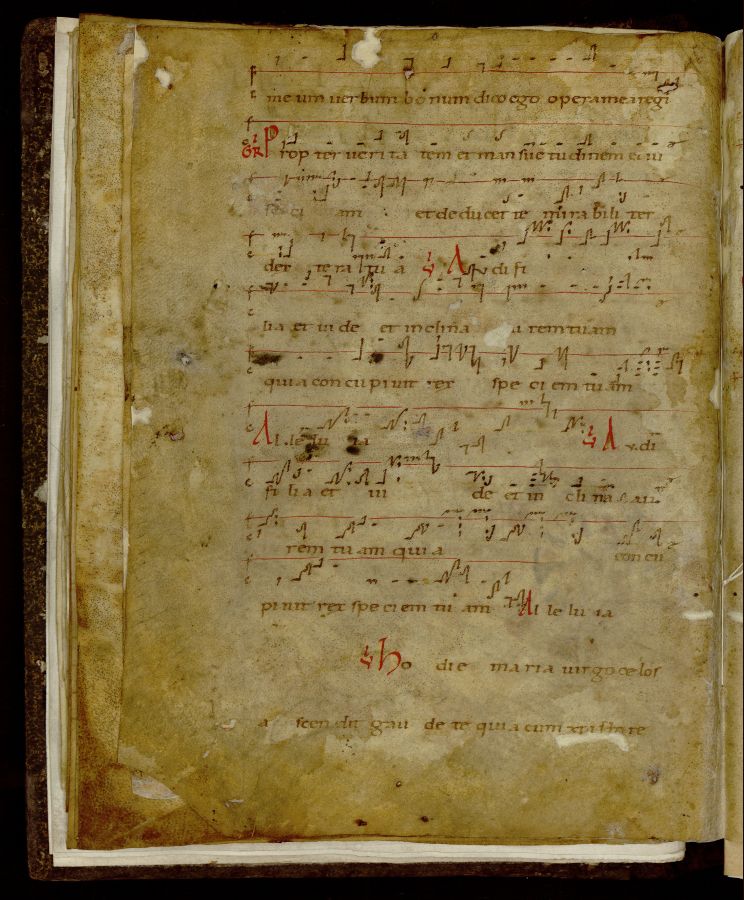 me um verbum bonum dico ego opera mea regi
GR Prop ter veri ta tem et man sue tu dinem et iu
sti ci am et de du cet te mi ra bili ter
dex te ra tu a V Au di fi
lia et vi de et in clina a urem tu am
qui a con cu pi vit rex spe ci em tu am
Al le lu ia V Au di
fi li a et vi de et in cli na au
rem tu am qui a con cu
pi vit rex spe ci em tu am Al le lu ia
V Ho di e ma ri a virgo celos
a scen dit gau de te qui a cum